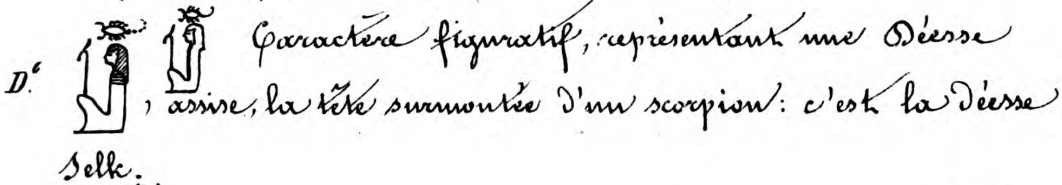 D.ᶜ , Caractère figuratif, représentant une Déesse
assise, la tête surmontée d'un scorpion: c'est la Déesse
Selk.